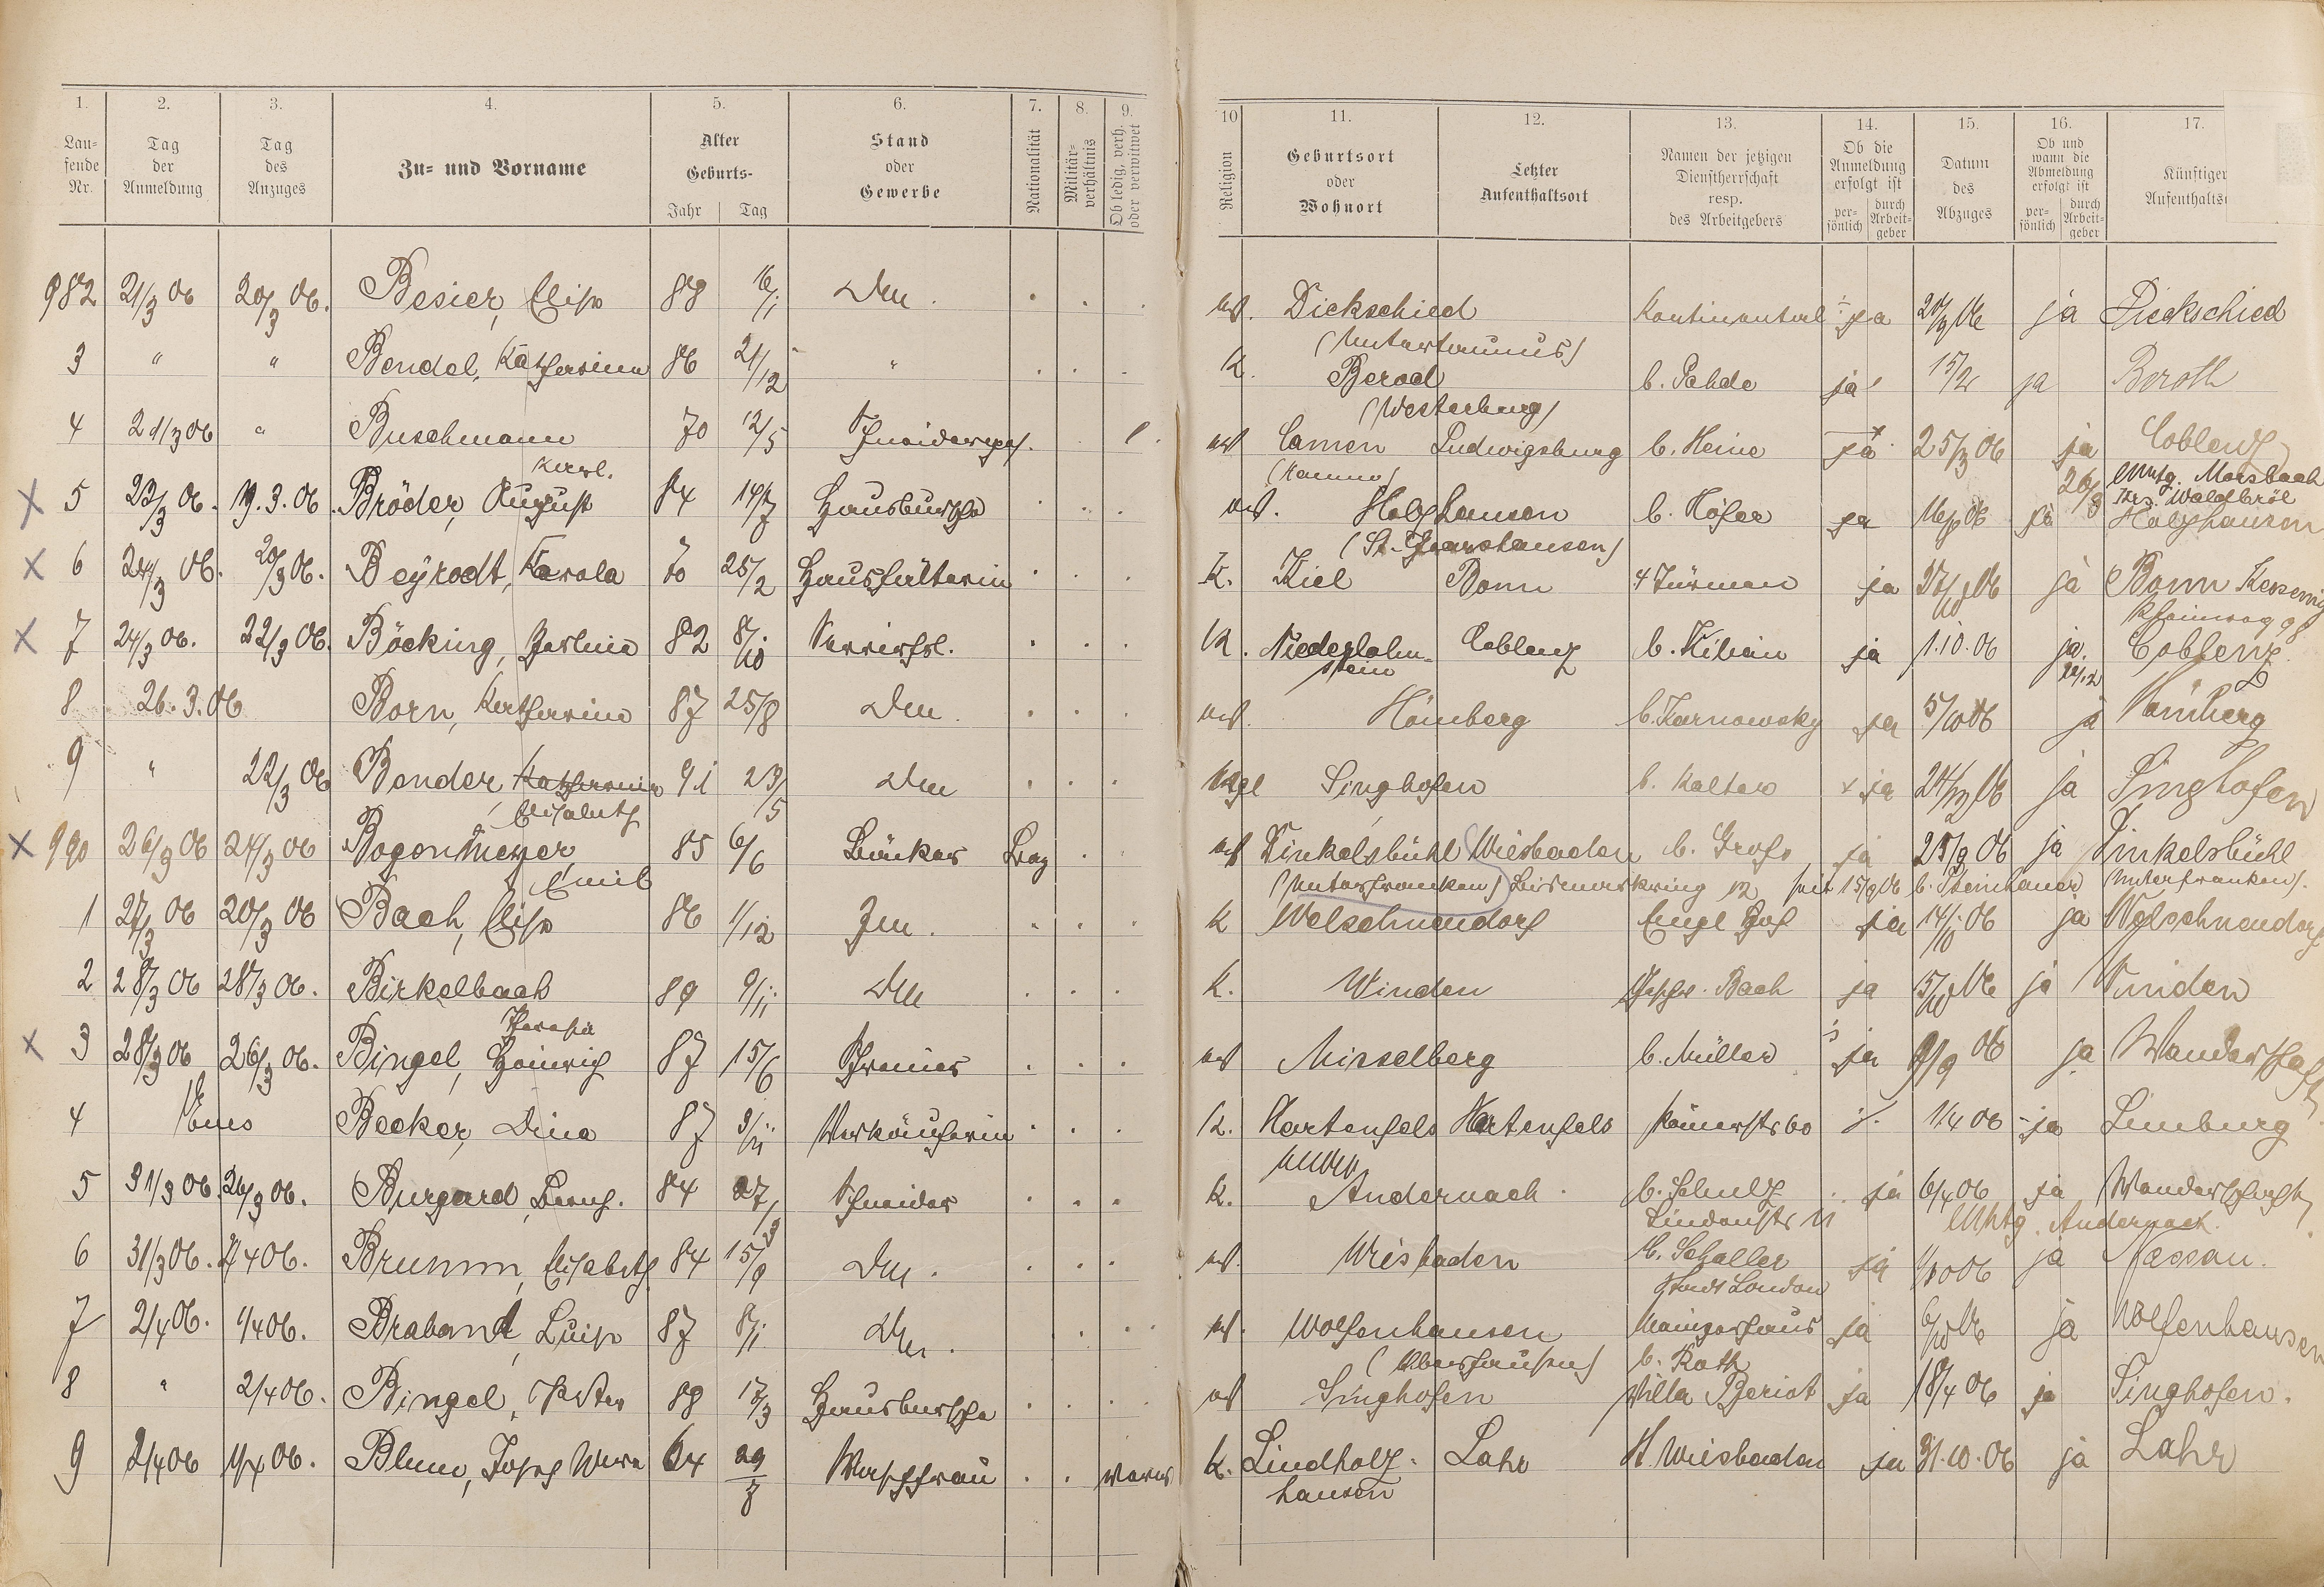 1. 2. 3. 4. 5. 6. 7. 8. 9. 10 11. 12. 13. 14. 15. 16. 17.
Lau-
fende
Nr.
Tag
der
Anmeldung
Tag
des
Anzuges
Zu- und Vorname
Alter
Geburts-
Jahr Tag
Stand
oder
Gewerbe
Nationalität
Militär-
verhältnis
Ob ledig, verh.
oder verwitwet
Religion
Geburtsort
oder
Wohnort
Letzter
Aufenthaltsort
Namen der jetzigen
Dienstherrschaft
resp.
des Arbeitgebers
Ob die
Anmeldung
erfolgt ist
per-
sönlich
durch
Arbeit-
geber
Datum
des
Abzuges
Ob und
wann die
Abmeldung
erfolgt ist
per-
sönlich
durch
Arbeit-
geber
Künftiger
Aufenthalts
982 21/3 06 20/3 06. Besier, Elise 88 16/1 Dm. . . . ev. Dickschied Kontinental ja ja Dickschied
(Untertaunus)
3 " " Bendel, Katharina 86 21/12 " . . . K. Berod b. Pahde ja 15/4 ja Beroth
(Westerburg)
4 21/3 06 " Buschmann 70 12/5 Schneidergeh. . l. ev Camen Ludwigsburg b. Heine ja 25/3 06 ja Coblenz
Karl. (Kamen) 26/3 Morsbach
Krs. Waldbröl
X 5 23/3 06. 19.3.06. Bröder, August 84 14/7 Hausbursche . . . ev. Holzhausen b. Höfer ja ja Holzhausen
(St. Goarshausen)
X 6 24/3 06. 20/3 06. Beyrodt, Karola 70 25/2 Haushälterin . . . K. Kiel Bonn 4 Türmen ja ja Bonn Kessenich
X 7 24/3 06. 22/3 06. Böcking, Pauline 82 8/10 Servierfrl. . . . K. Niederlahn- Coblenz b. Kilian ja 1.10.06 ja. Coblenz.
stein
8 26.3.06 Born, Katharina 87 25/8 Dm. . . . ev. Hömberg b. Karnowsky ja 5/10 06 ja Hömberg
9 " 22/3 06 Bender, Katharina 91 23/5 Dm . . . Singhofen b. Kalter x ja ja Singhofen
Elisabeth
X 990 26/3 06 24/3 06 Bogenmeyer, 85 6/6 Bäcker Bay . . ev Dinkelsbühl Wiesbaden b. Gross, ja ja Dinkelsbühl
Emil (Unterfranken) Bismarkring 12 seit 15/9 06 b. Steinhauer (Unterfranken).
1 27/3 06 20/3 06 Bach, Elise 86 1/12 Zm. . . . K Welschneudorf Engl Hof ja 14/10 06 ja Welschneudorf
2 28/3 06 28/3 06. Birkelbach 89 9/11 Dm . . . K. Winden Bach ja ja Winden
Theresia
X 3 28/3 06 26/3 06. Bingel, Heinrich 87 15/6 Schreiner . . . ev Misselberg b. Müller ja 9/9 06 ja Wanderschaft
4 Ems Becker, Dina 87 3/11 Verkäuferin . . . K. Hartenfels Hartenfels Römerstr 60 j. 1/4 06 ja Limburg
5 31/3 06. 26/3 06. Burgard, Bernh. 84 27/8 Schneider . . . K. Andernach. b. Schulz ja 6/4 06 ja Wanderschaft
Lindenstr 11 Andernach.
6 31/3 06. 2/4 06. Brumm, Elisabeth 84 15/9 Dm. . . . ev. Wiesbaden b. Schaller ja 1/10 06 ja Nassau.
Stadt London
7 2/4 06. 1/4 06. Braband, Luise 87 8/1 Dm. . . . ev. Wolfenhausen Mainzerhaus ja ja Wolfenhausen
(Oberlahn) b. Roth
8 " 2/4 06. Bingel, Peter 88 Hausbursche . . . ev Singhofen Villa Beriot ja 18/4 06 ja Singhofen.
9 2/4 06 1/4 06. Blum, Josef Wwe 64 29/7 Waschfrau . . K. Lindholz- Lahr H. Wiesbaden ja 31.10.06 ja Lahr
hausen